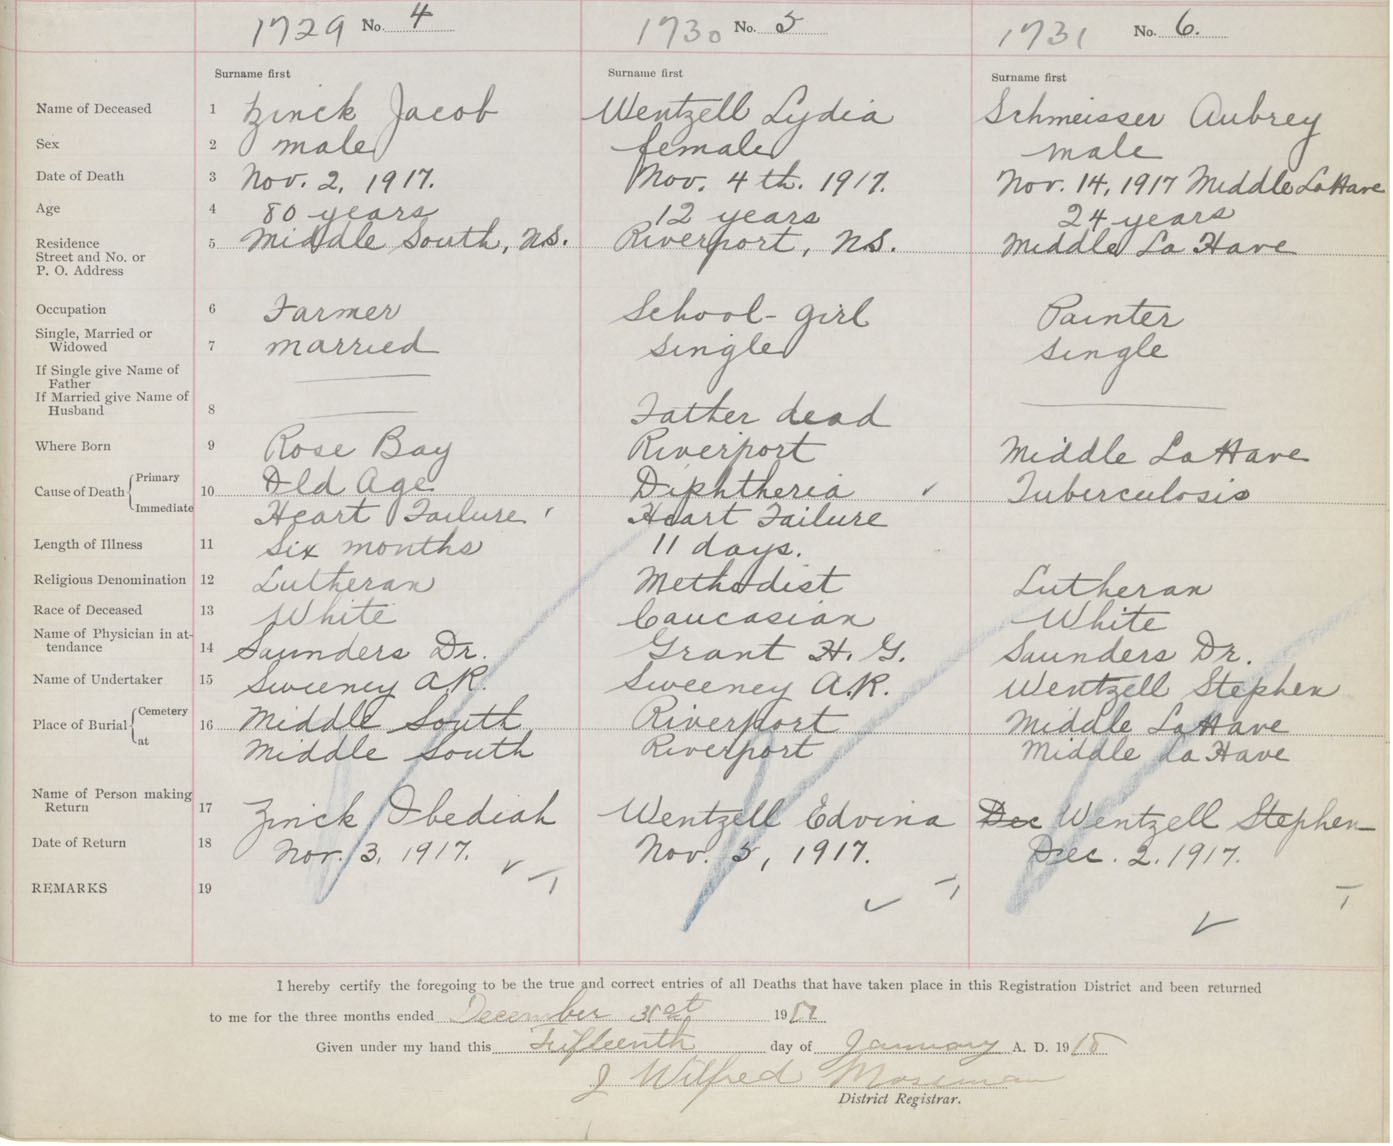 1729 No. 4 1730 No. 5 1731 No. 6.
Surname first Surname first Surname first
Name of Deceased 1 Zinck Jacob Wentzell Lydia Schmeisser Aubrey
Sex 2 male female male
Date of Death 3 Nov. 2, 1917. Nov. 4th. 1917. Nov. 14, 1917 Middle LaHave
Age 4 80 years 12 years 24 years
Residence Street and No. or P. O. Address 5 Middle South, N.S. Riverport, N.S. Middle La Have
Occupation 6 Farmer School-girl Painter
Single, Married or Widowed 7 married single single
If Single give Name of Father
If Married give Name of Husband 8 Father dead
Where Born 9 Rose Bay Riverport Middle LaHave
Cause of Death Primary 10 Old Age Diphtheria Tuberculosis
Immediate Heart Failure Heart Failure
Length of Illness 11 Six months 11 days.
Religious Denomination 12 Lutheran Methodist Lutheran
Race of Deceased 13 White Caucasian White
Name of Physician in attendance 14 Saunders Dr. Grant H. G. Saunders Dr.
Name of Undertaker 15 Sweeney A.R. Sweeney A.R. Wentzell Stephen
Place of Burial Cemetery 16 Middle South Riverport Middle LaHave
at Middle South Riverport Middle La Have
Name of Person making Return 17 Zinck Obediah Wentzell Edvina Dec Wentzell Stephen
Date of Return 18 Nov. 3, 1917. Nov. 5, 1917. Dec. 2. 1917.
REMARKS 19
I hereby certify the foregoing to be the true and correct entries of all Deaths that have taken place in this Registration District and been returned
to me for the three months ended December 31st 1917
Given under my hand this Fifteenth day of January A. D. 1918
J Wilfred Mossman
District Registrar.